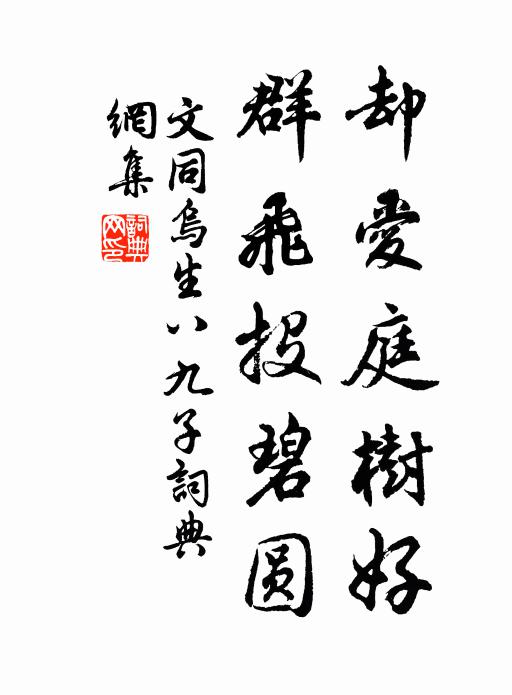 却愛庭樹好
群飛投碧圆
文同烏生八九子詞典
網集
詞典
网印